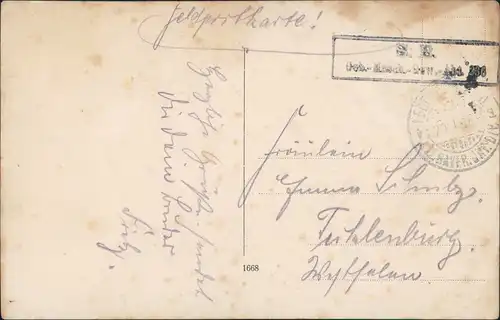 Feldpostkarte!
S. B.
Geb.-Masch.-Gew.-Abt. 206
Herzliche Grüße sendet
dir dein Bruder
Fritz.
Fräulein
Emma Schulz.
Tecklenburg.
Westfalen.
1668